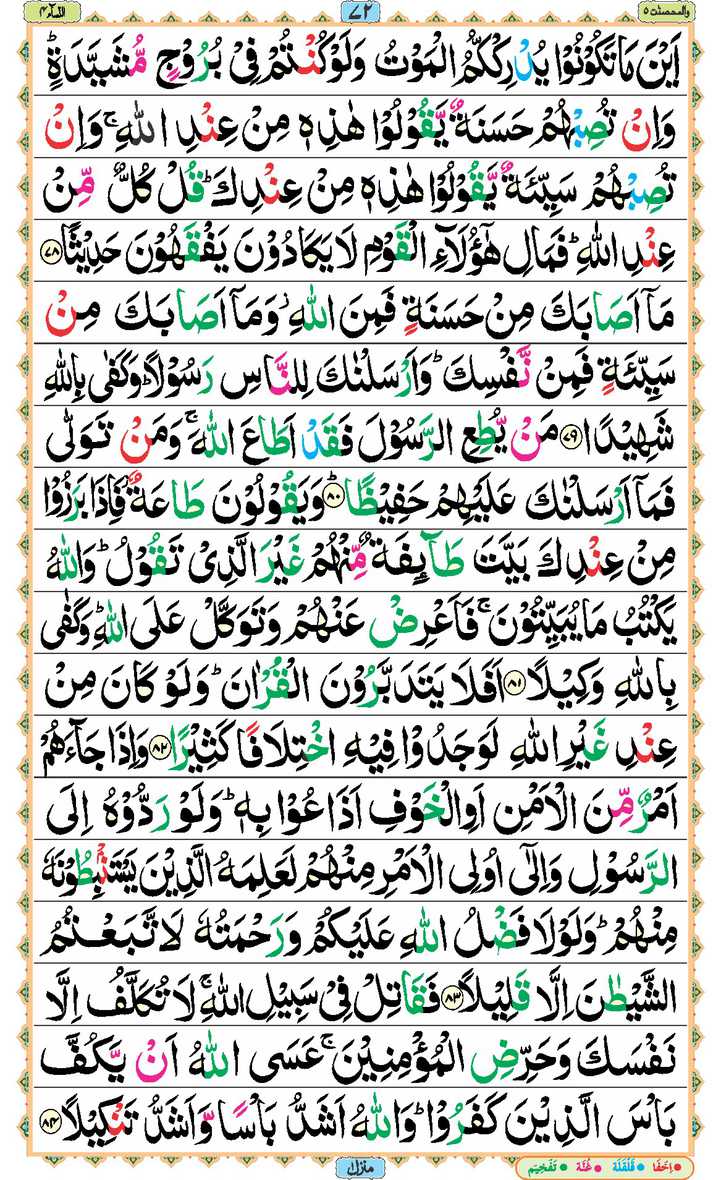 والمحصنت ٥
٧٢
النساء ٤
اَيْنَ مَا تَكُوْنُوْا يُدْرِكْكُّمُ الْمَوْتُ وَلَوْ كُنْتُمْ فِيْ بُرُوْجٍ مُّشَيَّدَةٍ ؕ
وَاِنْ تُصِبْهُمْ حَسَنَةٌ يَّقُوْلُوْا هٰذِهٖ مِنْ عِنْدِ اللّٰهِ ۚ وَاِنْ
تُصِبْهُمْ سَيِّئَةٌ يَّقُوْلُوْا هٰذِهٖ مِنْ عِنْدِكَ ؕ قُلْ كُلٌّ مِّنْ
عِنْدِ اللّٰهِ ؕ فَمَالِ هٰۤؤُلَآءِ الْقَوْمِ لَا يَكَادُوْنَ يَفْقَهُوْنَ حَدِيْثًا ﴿٧٨﴾
مَاۤ اَصَابَكَ مِنْ حَسَنَةٍ فَمِنَ اللّٰهِ ۫ وَمَاۤ اَصَابَكَ مِنْ
سَيِّئَةٍ فَمِنْ نَّفْسِكَ ؕ وَاَرْسَلْنٰكَ لِلنَّاسِ رَسُوْلًا ؕ وَكَفٰى بِاللّٰهِ
شَهِيْدًا ﴿٧٩﴾ مَنْ يُّطِعِ الرَّسُوْلَ فَقَدْ اَطَاعَ اللّٰهَ ۚ وَمَنْ تَوَلّٰى
فَمَاۤ اَرْسَلْنٰكَ عَلَيْهِمْ حَفِيْظًا ﴿٨٠﴾ؕ وَيَقُوْلُوْنَ طَاعَةٌ ؗ فَاِذَا بَرَزُوْا
مِنْ عِنْدِكَ بَيَّتَ طَآئِفَةٌ مِّنْهُمْ غَيْرَ الَّذِيْ تَقُوْلُ ؕ وَاللّٰهُ
يَكْتُبُ مَا يُبَيِّتُوْنَ ۚ فَاَعْرِضْ عَنْهُمْ وَتَوَكَّلْ عَلَى اللّٰهِ ؕ وَكَفٰى
بِاللّٰهِ وَكِيْلًا ﴿٨١﴾ اَفَلَا يَتَدَبَّرُوْنَ الْقُرْاٰنَ ؕ وَلَوْ كَانَ مِنْ
عِنْدِ غَيْرِ اللّٰهِ لَوَجَدُوْا فِيْهِ اخْتِلَافًا كَثِيْرًا ﴿٨٢﴾ وَاِذَا جَآءَهُمْ
اَمْرٌ مِّنَ الْاَمْنِ اَوِ الْخَوْفِ اَذَاعُوْا بِهٖ ؕ وَلَوْ رَدُّوْهُ اِلَى
الرَّسُوْلِ وَاِلٰۤى اُولِي الْاَمْرِ مِنْهُمْ لَعَلِمَهُ الَّذِيْنَ يَسْتَنْۢبِطُوْنَهٗ
مِنْهُمْ ؕ وَلَوْلَا فَضْلُ اللّٰهِ عَلَيْكُمْ وَرَحْمَتُهٗ لَاتَّبَعْتُمُ
الشَّيْطٰنَ اِلَّا قَلِيْلًا ﴿٨٣﴾ فَقَاتِلْ فِيْ سَبِيْلِ اللّٰهِ ۚ لَا تُكَلَّفُ اِلَّا
نَفْسَكَ وَحَرِّضِ الْمُؤْمِنِيْنَ ۚ عَسَى اللّٰهُ اَنْ يَّكُفَّ
بَاْسَ الَّذِيْنَ كَفَرُوْا ؕ وَاللّٰهُ اَشَدُّ بَاْسًا وَّاَشَدُّ تَنْكِيْلًا ﴿٨٤﴾
منزل
اِخْفَا قَلْقَلَة غُنَّة تَفْخِيْم